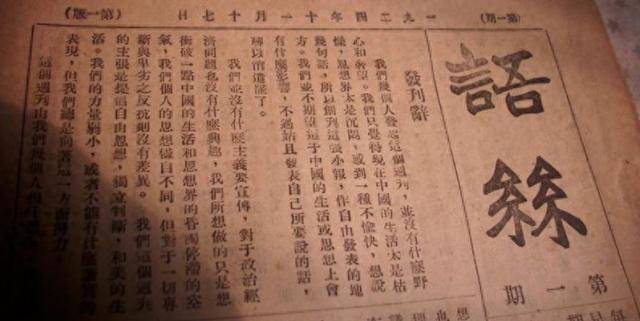 (第一期)
一九二四年十一月十七日
(第一版)
語絲
第一期
發刊辭
我們幾個人發起這個週刊,並沒有什麽野
心和奢望。我們只覺得現在中國的生活太是枯
燥,思想界太是沉悶,感到一種不愉快,想說
幾句話,所以創刊這張小報,作自由發表的地
方。我們並不期望這于中國的生活或思想上會
有什麽影響,不過姑且發表自己所要說的話,
聊以消遣罷了。
我們並沒有什麽主義要宣傳,對于政治經
濟問題也沒有什麽興趣,我們所想做的只是想
衝破一點中國的生活和思想界的昏濁停滯的空
氣。我們個人的思想儘自不同,但對于一切專
斷與卑劣之反抗則沒有差異。我們這個週刊
的主張是提倡自由思想,獨立判斷,和美的生
活。我們的力量弱小,或者不能有什麽著實的
表現,但我們總是向著這一方面努力。
這個週刊由我們幾個人